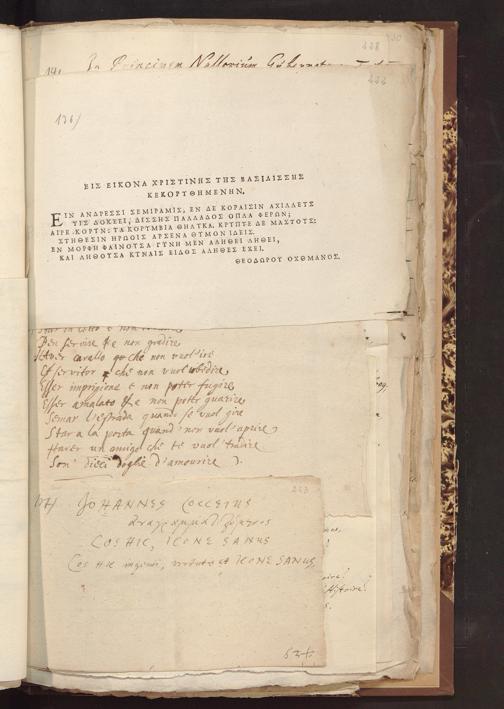 228 230
191 In Principem Nassovium Gubernat
232
136)
ΕΙΣ ΕΙΚΟΝΑ ΧΡΙΣΤΙΝΗΣ ΤΗΣ ΒΑΣΙΛΙΣΣΗΣ
ΚΕΚΟΡΥΘΗΜΕΝΗΝ.
ΕΙΝ ΑΝΔΡΕΣΣΙ ΣΕΜΙΡΑΜΙΣ, ΕΝ ΔΕ ΚΟΡΑΙΣΙΝ ΑΧΙΛΛΕΥΣ
ΤΙΣ ΔΟΚΕΕΙ, ΔΙΣΣΗΣ ΠΑΛΛΑΔΟΣ ΟΠΛΑ ΦΕΡΩΝ;
ΑΙΡΕ ΚΟΡΥΝ: ΤΑ ΚΟΡΥΜΒΙΑ ΘΗΛΥΚΑ, ΚΡΥΠΤΕ ΔΕ ΜΑΣΤΟΥΣ:
ΣΤΗΘΕΣΙΝ ΗΡΩΟΙΣ ΑΡΣΕΝΑ ΘΥΜΟΝ ΙΔΕΙΣ.
ΕΝ ΜΟΡΦΗ ΦΑΙΝΟΥΣΑ ΓΥΝΗ ΜΕΝ ΑΛΗΘΕΙ ΛΗΘΕΙ,
ΚΑΙ ΛΗΘΟΥΣΑ ΓΥΝΑΙΣ ΕΙΔΟΣ ΑΛΗΘΕΣ ΕΧΕΙ.
ΘΕΟΔΩΡΟΥ ΟΧΘΜΑΝΟΣ.
Star in letto e non
Ben servire e non gradire
Haver cavallo che non vuol ire
Et servitor che non vuol obedire
Esser imprigione e non poter fugire
Esser amalato e non poter guarire
Semar l'estrada quando se vuol gire
Star a la porta quand' non vuol aprire
Haver un amigo che te vuol tradire
Son' dieci doglie d'amourire.
137)
223
JOHANNES COCCEIUS
αναγραμματιζόμενος
COS HIC, ICONE SANUS
COS HIC ingenii, virtutis et ICONE SANUS
534